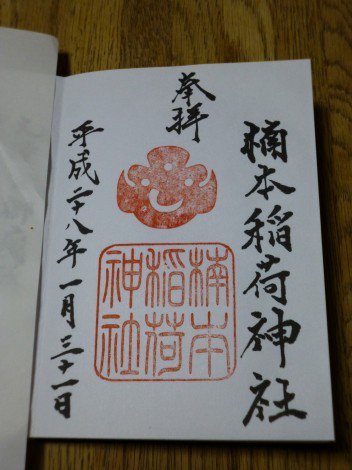 楠本稲荷神社
奉拝
楠本
稲荷
神社
平成二十八年一月三十一日